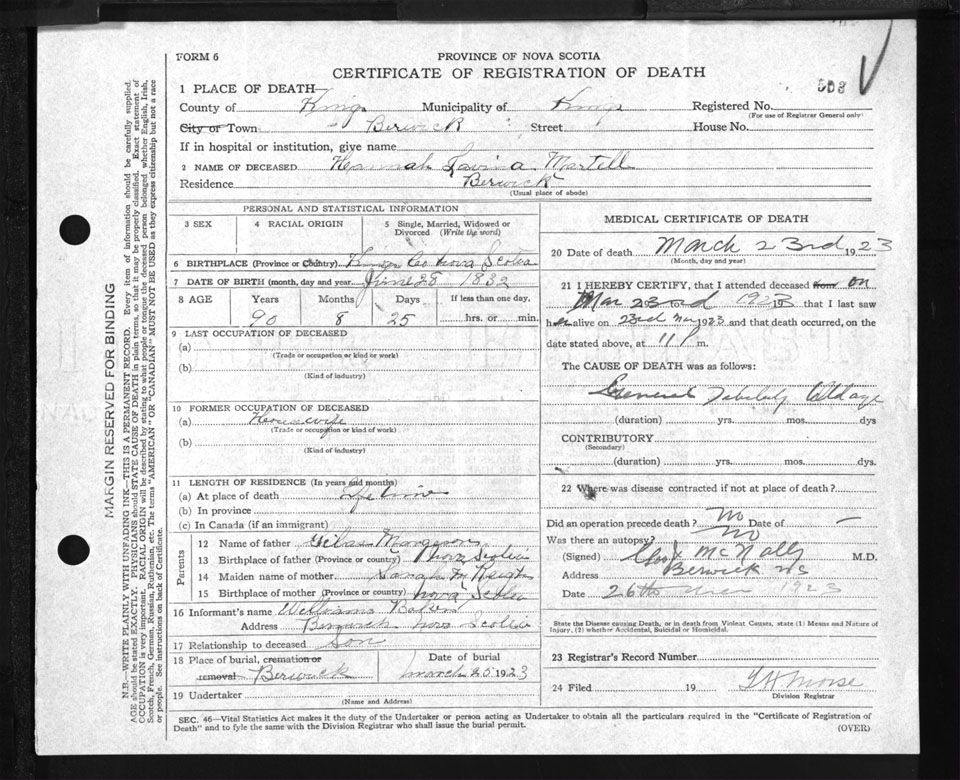 FORM 6
PROVINCE OF NOVA SCOTIA
CERTIFICATE OF REGISTRATION OF DEATH
1 PLACE OF DEATH—
County of Kings Municipality of Kings Registered No. 508
(For use of Registrar General only)
City or Town Berwick Street House No.
If in hospital or institution, give name
2 NAME OF DECEASED Hannah Lavina Martell
Residence Berwick
(Usual place of abode)
PERSONAL AND STATISTICAL INFORMATION
3 SEX 4 RACIAL ORIGIN 5 Single, Married, Widowed or Divorced (Write the word)
6 BIRTHPLACE (Province or Country) Kings Co Nova Scotia
7 DATE OF BIRTH (month, day and year) June 28 1832
8 AGE Years Months Days If less than one day,
90 8 25 hrs. or min.
9 LAST OCCUPATION OF DECEASED
(a)
(Trade or occupation or kind or work)
(b)
(Kind of industry)
10 FORMER OCCUPATION OF DECEASED
(a) Housewife
(Trade or occupation or kind of work)
(b)
(Kind of industry)
11 LENGTH OF RESIDENCE (In years and months)
(a) At place of death Life time
(b) In province
(c) In Canada (if an immigrant)
Parents
12 Name of father Margeson
13 Birthplace of father (Province or country) Nova Scotia
14 Maiden name of mother Sarah
15 Birthplace of mother (Province or country) Nova Scotia
16 Informant's name William Baker
Address Berwick Nova Scotia
17 Relationship to deceased Son
18 Place of burial, cremation or removal Berwick Date of burial March 1923
19 Undertaker
(Name and Address)
MEDICAL CERTIFICATE OF DEATH
20 Date of death March 23rd 1923
(Month, day and year)
21 I HEREBY CERTIFY, that I attended deceased from on
Mar 23rd 1923 19 that I last saw
her alive on 23rd Mar 1923 and that death occurred, on the
date stated above, at 11 P m.
The CAUSE OF DEATH was as follows:
General Debility Old age
(duration) yrs. mos. dys
CONTRIBUTORY
(Secondary)
(duration) yrs. mos. dys.
22 Where was disease contracted if not at place of death?
Did an operation precede death? No Date of —
Was there an autopsy? No
(Signed) McNally M.D.
Address Berwick NS
Date 26th Mar 1923
State the Disease causing Death, or in death from Violent Causes, state (1) Means and Nature of
Injury, (2) whether Accidental, Suicidal or Homicidal.
23 Registrar's Record Number
24 Filed 19 Morse
Division Registrar
SEC. 46—Vital Statistics Act makes it the duty of the Undertaker or person acting as Undertaker to obtain all the particulars required in the "Certificate of Registration of
Death" and to fyle the same with the Division Registrar who shall issue the burial permit.
(OVER)
MARGIN RESERVED FOR BINDING
N.B.—WRITE PLAINLY WITH UNFADING INK—THIS IS A PERMANENT RECORD. Every item of information should be carefully supplied.
AGE should be stated EXACTLY. PHYSICIANS should STATE CAUSE OF DEATH in plain terms, so that it may be properly classified. Exact statement of
OCCUPATION is very important. RACIAL ORIGIN will be described by stating to what people or tongue the deceased person belonged whether English, Irish,
Scotch, French, German, Russian, Ruthenian, etc. The terms "AMERICAN" OR "CANADIAN" MUST NOT BE USED as they express citizenship but not a race
or people. See instructions on back of Certificate.